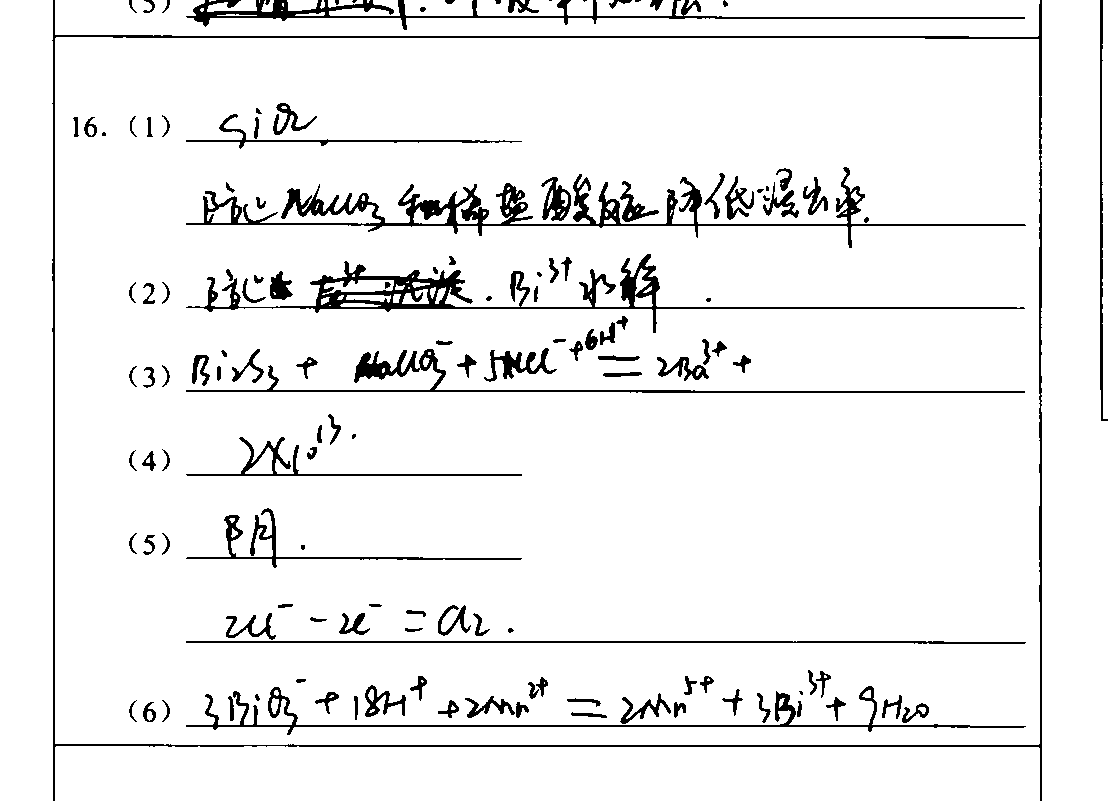 (5)
16. (1) SiO2.
防止NaClO3和稀盐酸反应降低浸出率.
(2) 防止 . Bi³⁺水解 .
(3) Bi2S3 + ClO3⁻ + Cl⁻ + 6H⁺ = 2Ba³⁺ +
(4) 2×10¹³.
(5) 阴 .
2Cl⁻ - 2e⁻ = Cl2 .
(6) 3BiO3⁻ + 18H⁺ + 2Mn²⁺ = 2Mn⁵⁺ + 3Bi³⁺ + 9H2O.